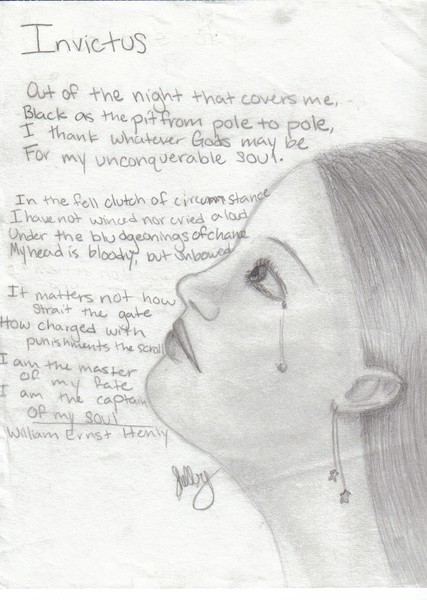 Invictus
Out of the night that covers me,
Black as the pit from pole to pole,
I thank whatever Gods may be
For my unconquerable soul.
In the fell clutch of circumstance
I have not winced nor cried aloud
Under the bludgeonings of chane
My head is bloody, but unbowed
It matters not how
strait the gate
How charged with
punishments the scroll
I am the master
of my fate
I am the captain
of my soul
William Ernst Henly
Shelby